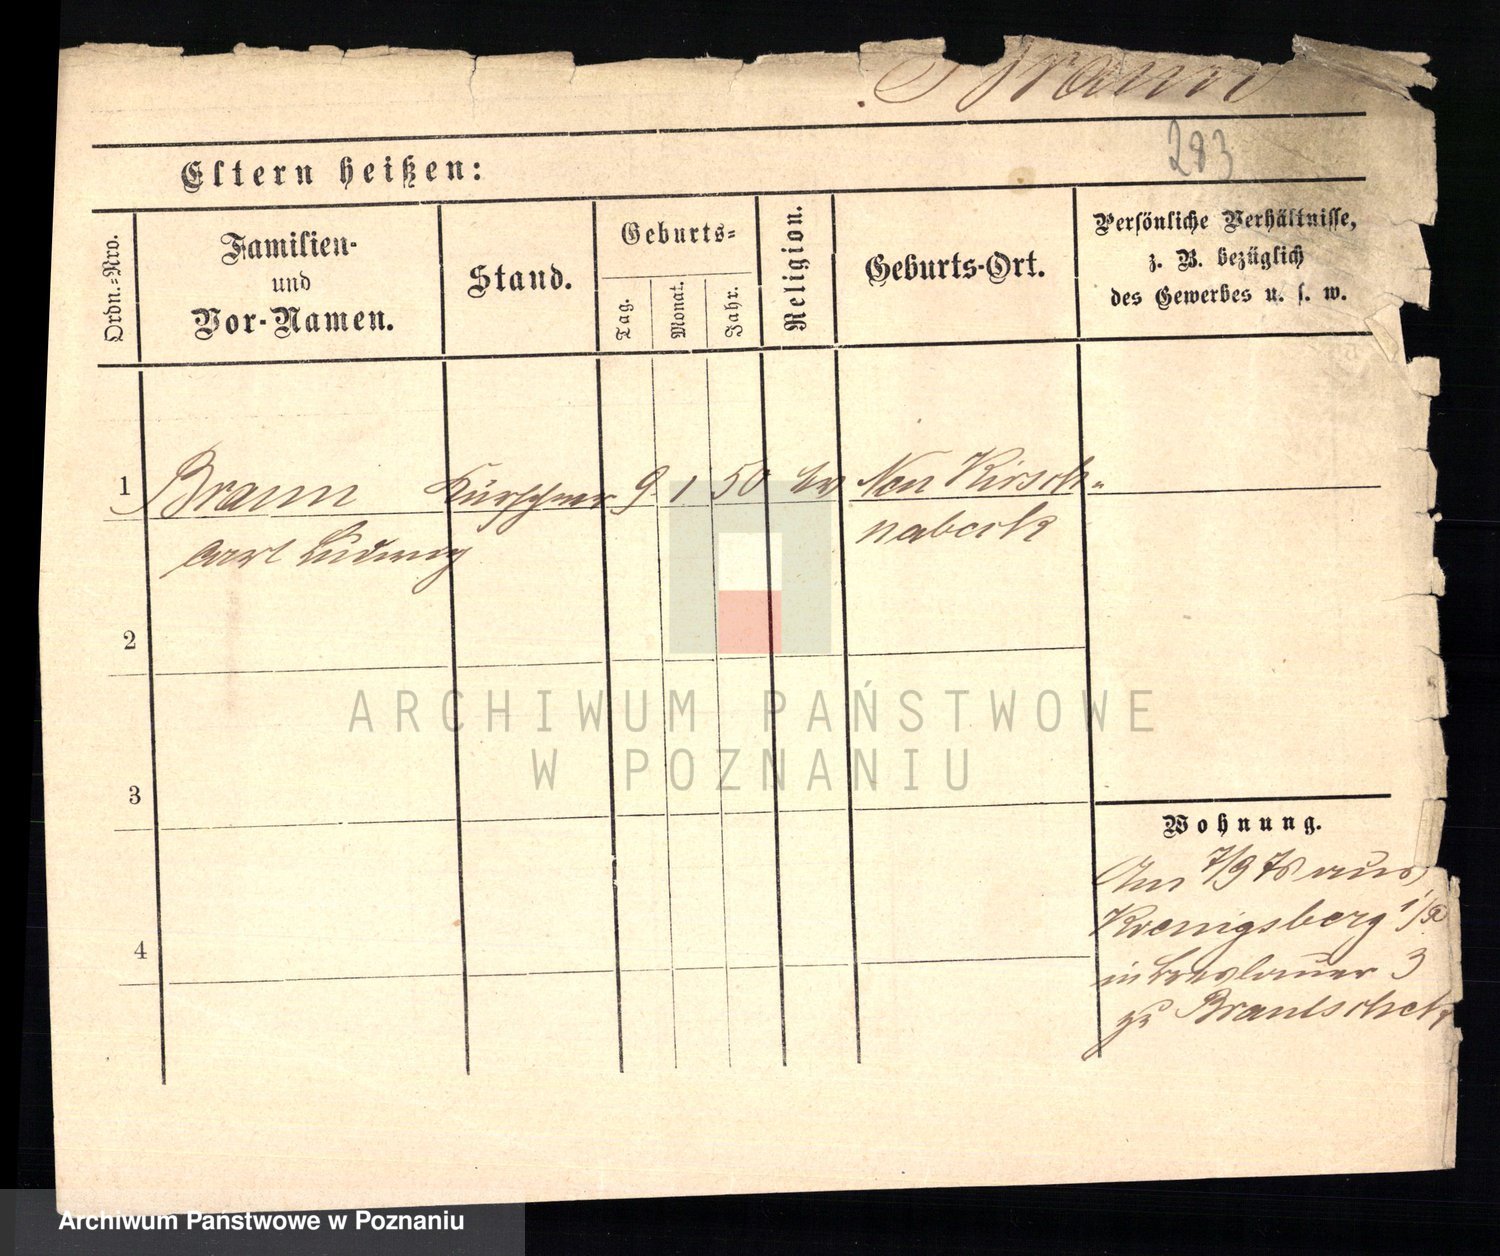 Braun
283
Eltern heißen:
Ordn.-Nro.
Familien-
und
Vor-Namen.
Stand.
Geburts-
Tag.
Monat.
Jahr.
Religion.
Geburts-Ort.
Persönliche Verhältnisse,
z. B. bezüglich
des Gewerbes u. s. w.
1 Braun Kürschner 9 1 50 ev Neu Kirsch-
Carl Ludwig
2
3
4
Wohnung.
Am 7/9 78 aus
Koenigsberg
in Breslauer 3
zu
ARCHIWUM PAŃSTWOWE
W POZNANIU
Archiwum Państwowe w Poznaniu